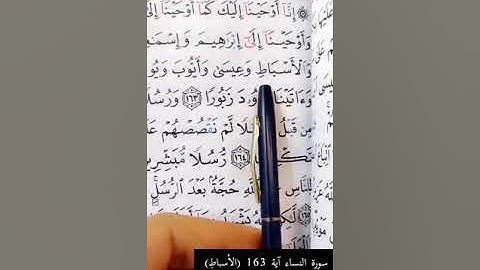 ۞ إِنَّا أَوْحَيْنَا إِلَيْكَ كَمَا أَوْحَيْنَا إِلَىٰ
وَأَوْحَيْنَا إِلَىٰ إِبْرَٰهِيمَ وَإِسْمَٰعِ
وَالْأَسْبَاطِ وَعِيسَىٰ وَأَيُّوبَ وَيُو
وَءَاتَيْنَا دَ زَبُورًا ١٦٣ وَرُسُلًا
مِن قَبْلُ لًا لَّمْ نَقْصُصْهُمْ عَ
تَكْلِ ١٦٤ رُّسُلًا مُّبَشِّرِي
لِلنَّاسِ عَ للَّهِ حُجَّةٌ بَعْدَ الرُّسُلِ
لَّٰكِنِ هُ يَشْهَدُ
سورة النساء آية 163 (الأسباط)